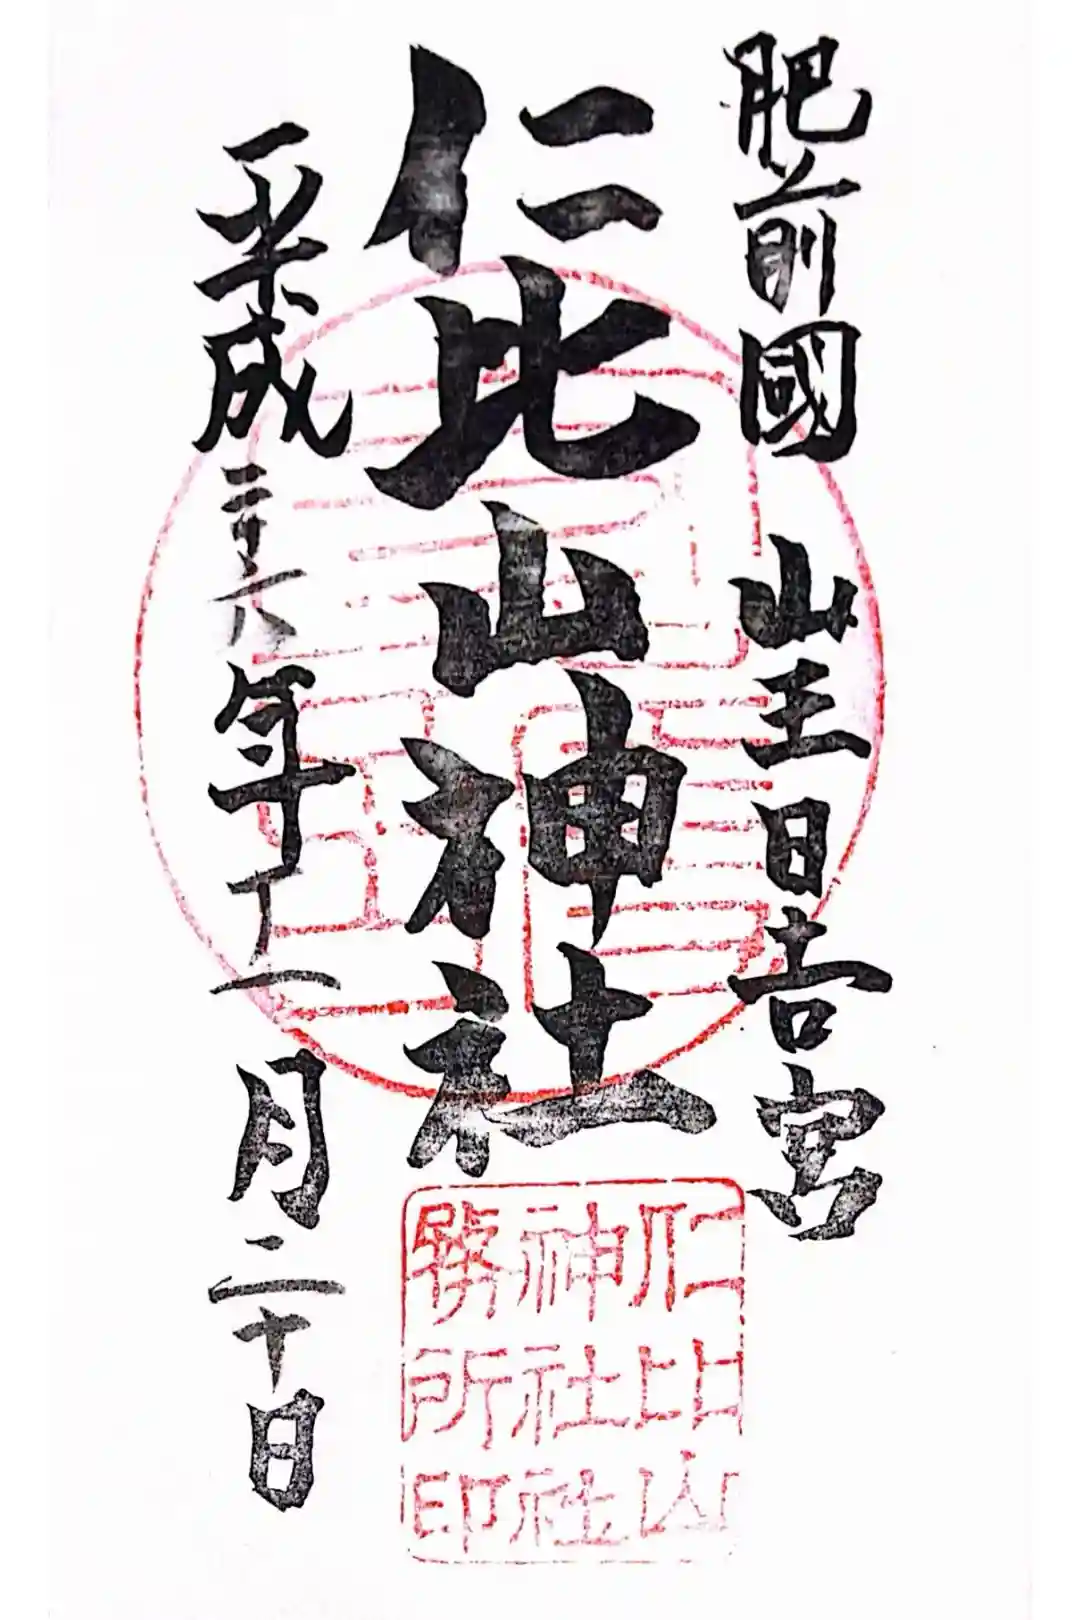 肥前國 山王日吉宮
仁比山神社
平成二十八年十一月二十日
仁比山
神社社
務所印